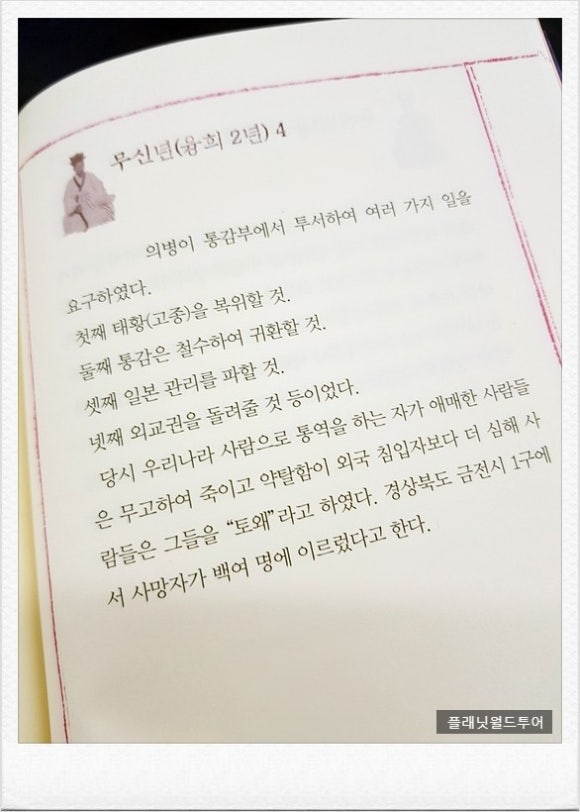 무신년(융희 2년) 4
의병이 통감부에서 투서하여 여러 가지 일을
요구하였다.
첫째 태황(고종)을 복위할 것.
둘째 통감은 철수하여 귀환할 것.
셋째 일본 관리를 파할 것.
넷째 외교권을 돌려줄 것 등이었다.
당시 우리나라 사람으로 통역을 하는 자가 애매한 사람들
은 무고하여 죽이고 약탈함이 외국 침입자보다 더 심해 사
람들은 그들을 “토왜”라고 하였다. 경상북도 금전시 1구에
서 사망자가 백여 명에 이르렀다고 한다.
플래닛월드투어